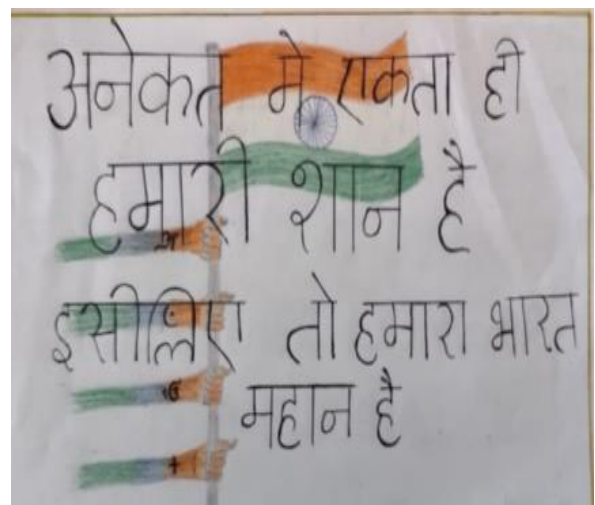 अनेकत मे एकता ही
हमारी शान है
इसीलिए तो हमारा भारत
महान है